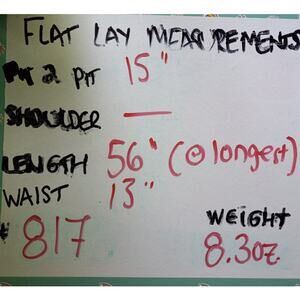 FLAT LAY MEASUREMENTS
PIT 2 PIT 15"
SHOULDER —
LENGTH 56" (@ longest)
WAIST 13"
# 817 WEIGHT
8.3oz.